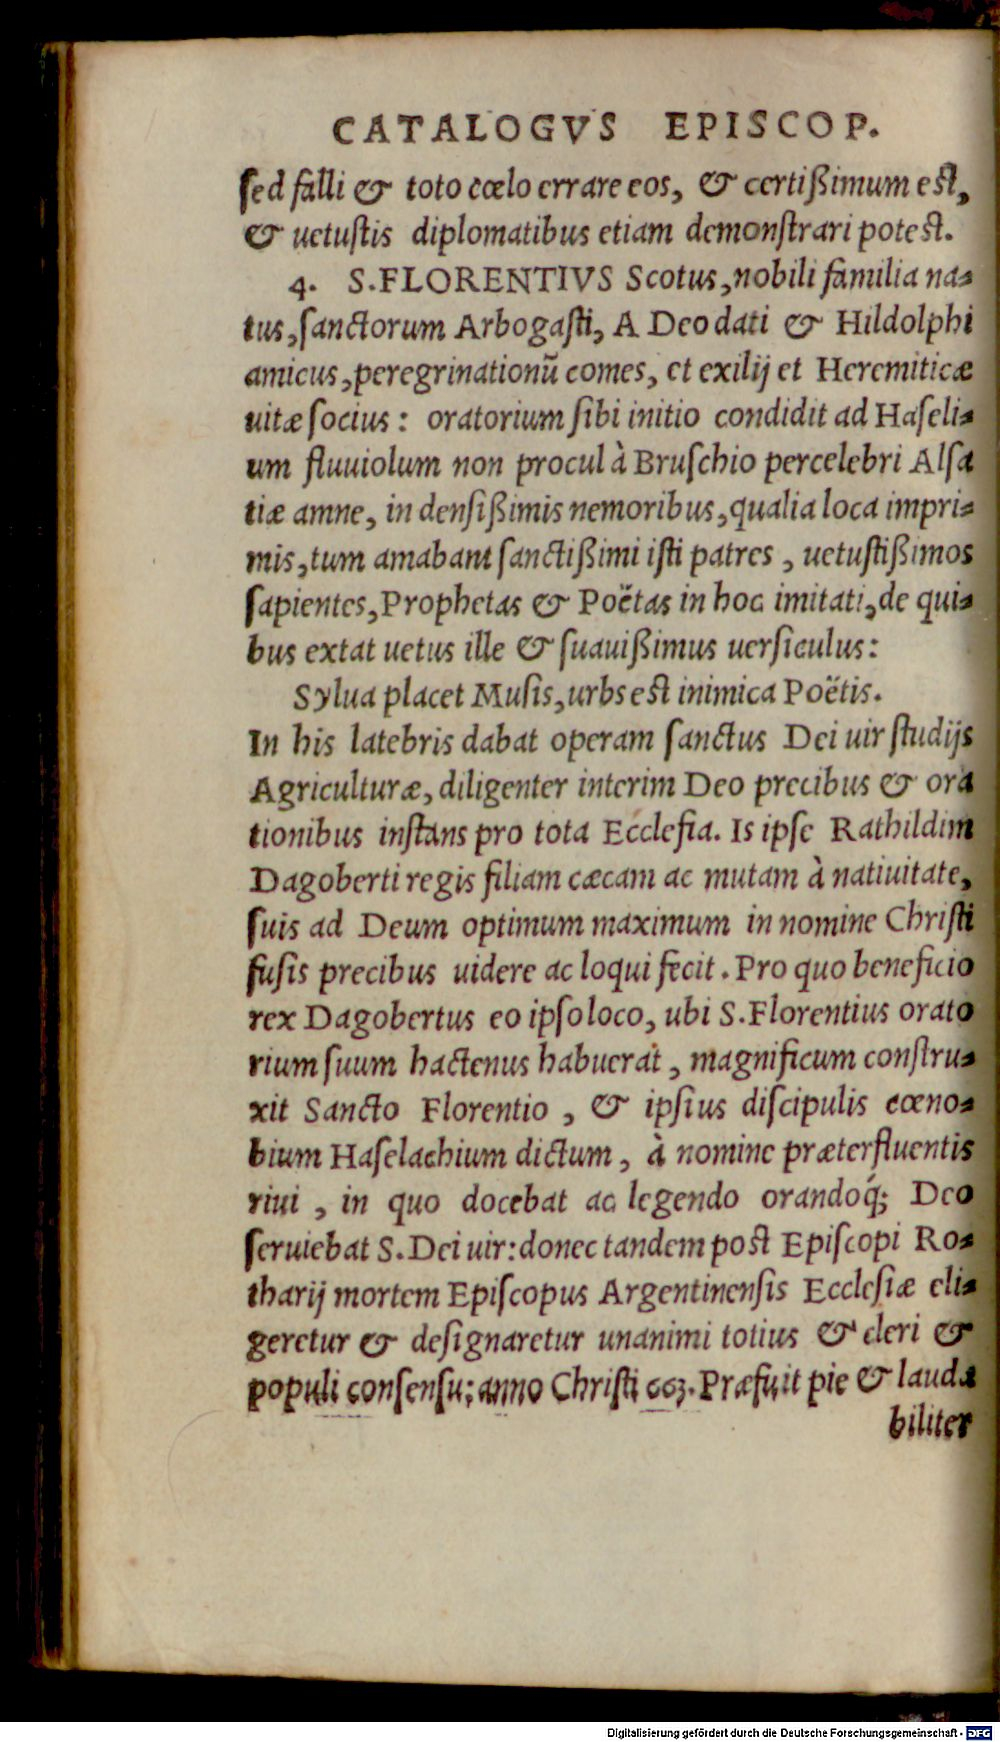 CATALOGVS EPISCOP.
sed falli & toto cœlo errare eos, & certißimum est,
& uetustis diplomatibus etiam demonstrari potest.
4. S. FLORENTIVS Scotus, nobili familia na-
tus, sanctorum Arbogasti, A Deodati & Hildolphi
amicus, peregrinationũ comes, et exilij et Heremiticæ
uitæ socius: oratorium sibi initio condidit ad Haseli-
um fluuiolum non procul à Bruschio percelebri Alsa
tiæ amne, in densißimis nemoribus, qualia loca impri-
mis, tum amabant sanctißimi isti patres, uetustißimos
sapientes, Prophetas & Poëtas in hoc imitati, de qui-
bus extat uetus ille & suauißimus uersiculus:
Sylua placet Musis, urbs est inimica Poëtis.
In his latebris dabat operam sanctus Dei uir studijs
Agriculturæ, diligenter interim Deo precibus & ora
tionibus instans pro tota Ecclesia. Is ipse Rathildim
Dagoberti regis filiam cæcam ac mutam à natiuitate,
suis ad Deum optimum maximum in nomine Christi
fusis precibus uidere ac loqui fecit. Pro quo beneficio
rex Dagobertus eo ipso loco, ubi S. Florentius orato
rium suum hactenus habuerat, magnificum constru-
xit Sancto Florentio, & ipsius discipulis cœno-
bium Haselachium dictum, à nomine præterfluentis
riui, in quo docebat ac legendo orandoq́; Deo
seruiebat S. Dei uir: donec tandem post Episcopi Ro-
tharij mortem Episcopus Argentinensis Ecclesiæ eli-
geretur & designaretur unanimi totius & cleri &
populi consensu: anno Christi 663. Præfuit pie & lauda
biliter
Digitalisierung gefördert durch die Deutsche Forschungsgemeinschaft - DFG